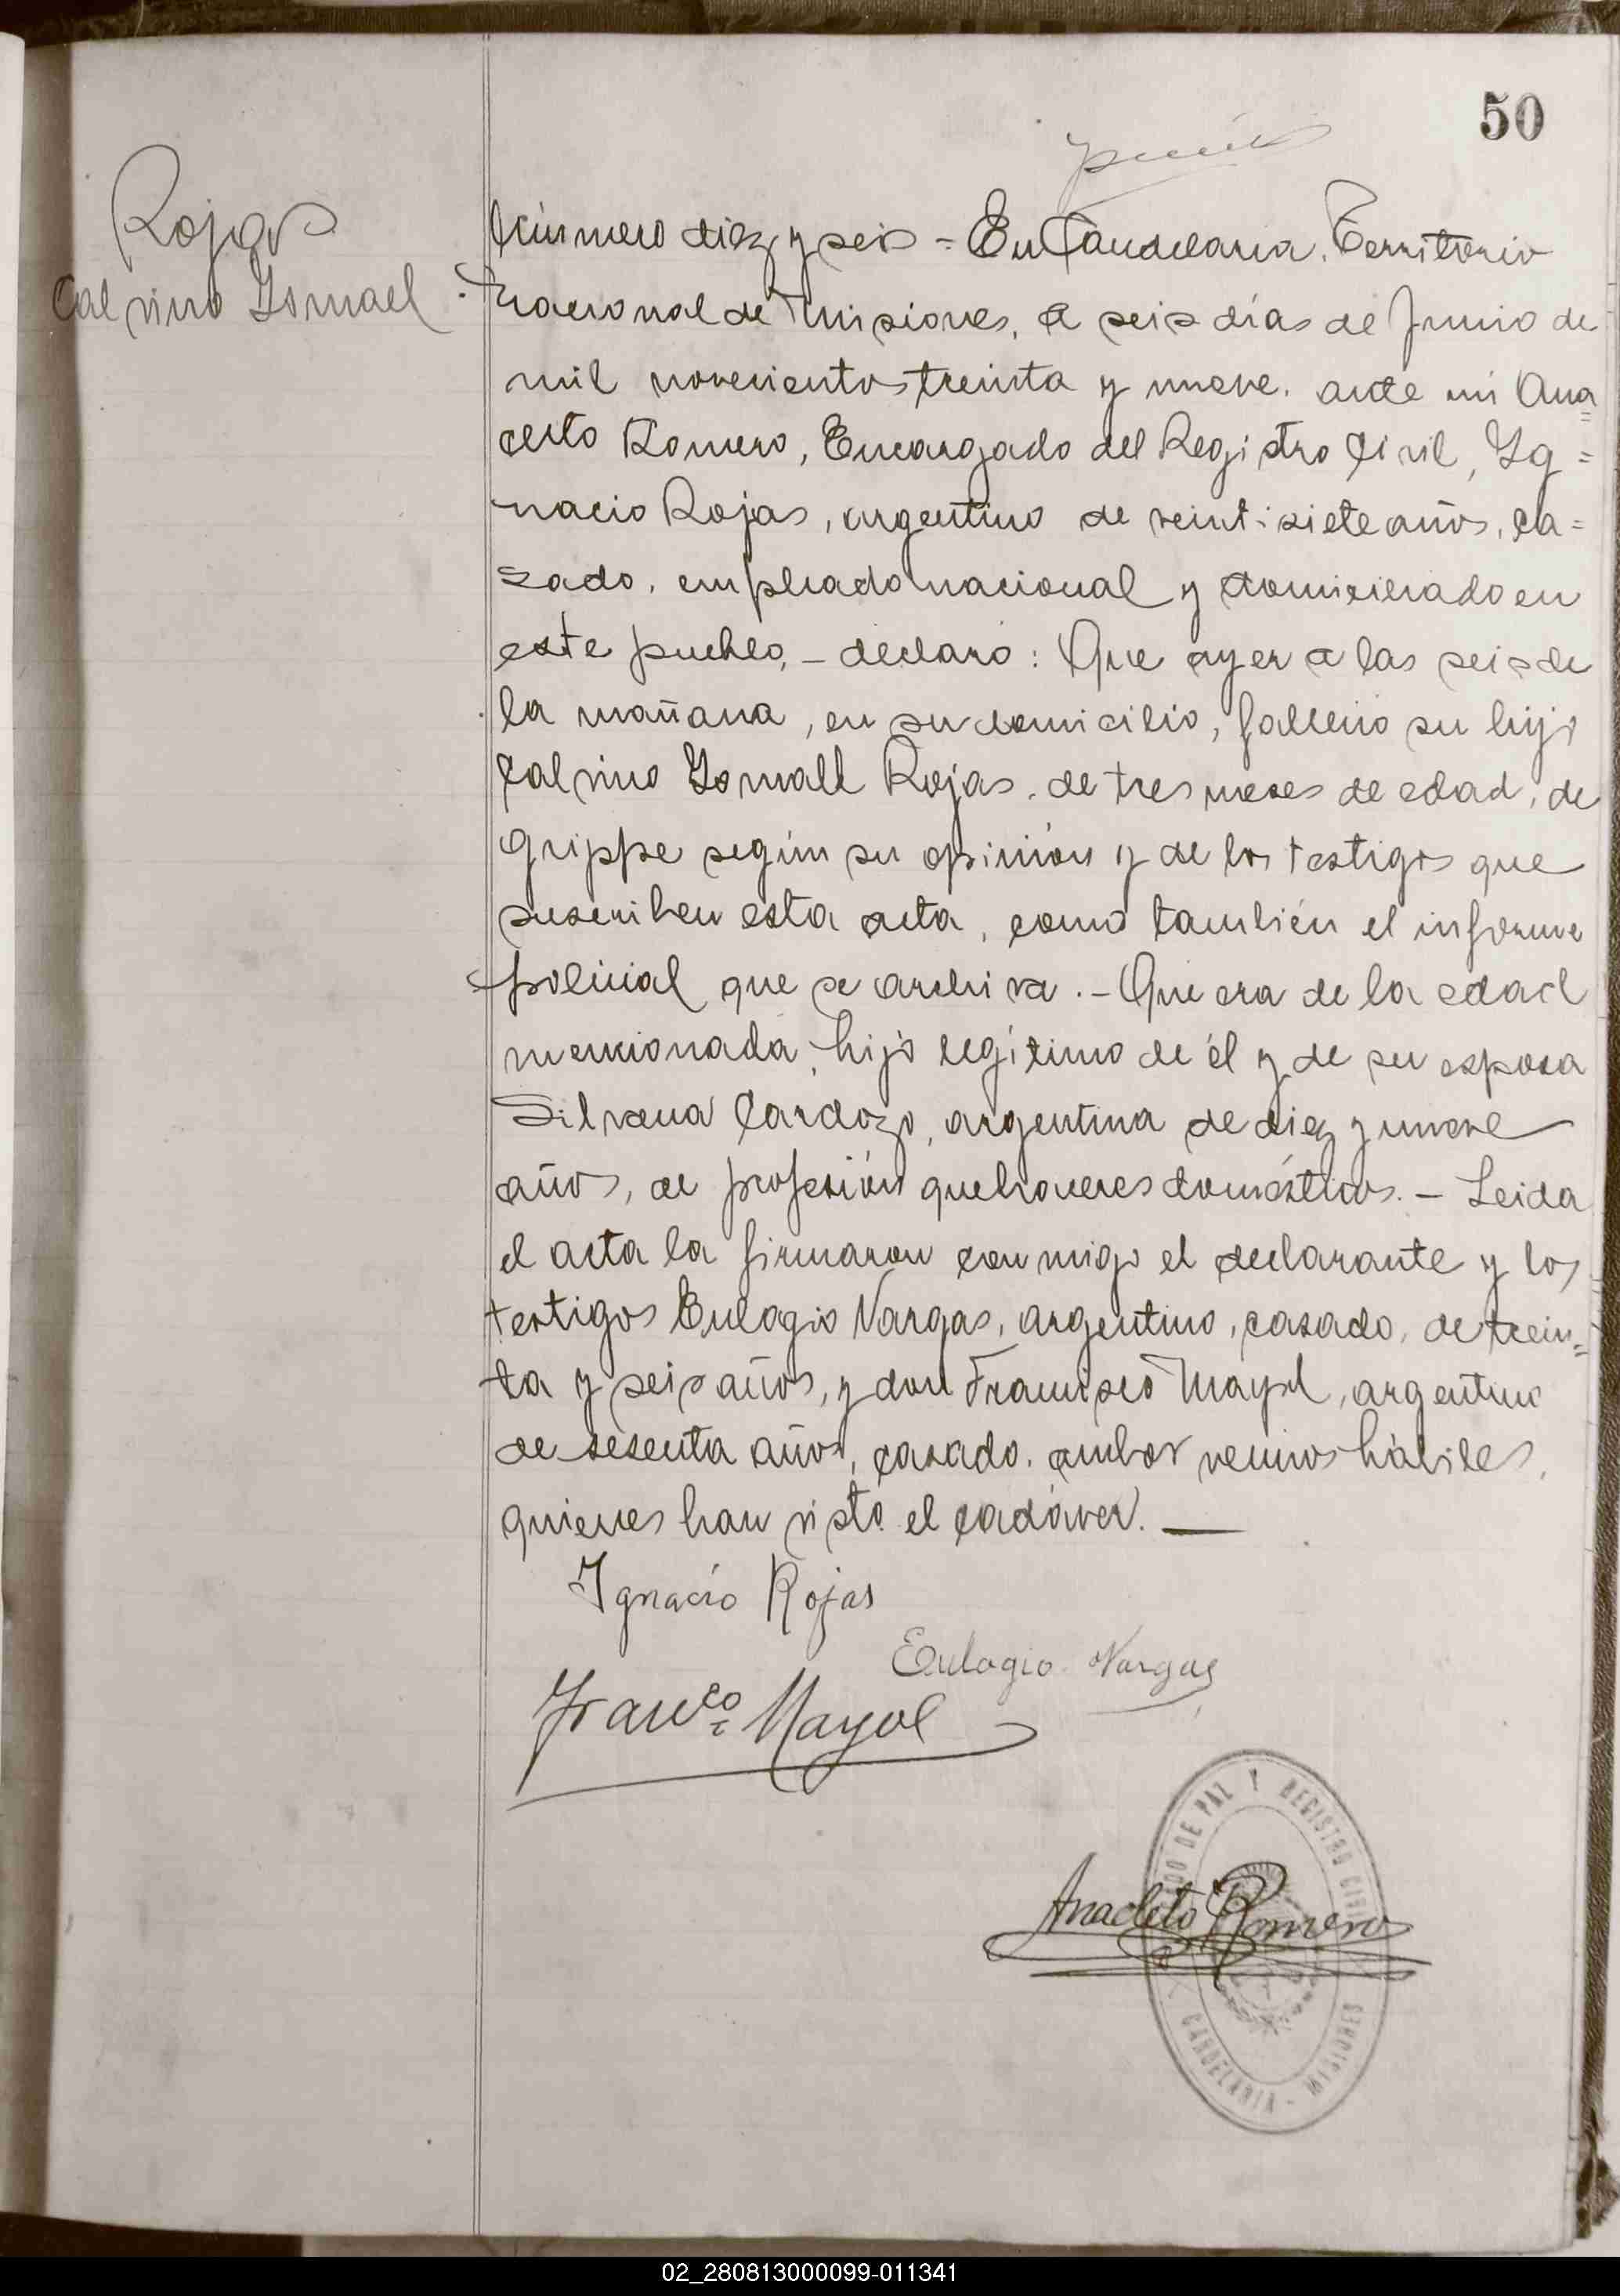 50
Rojas
Calvino Ismael
Número diez y seis = En Candelaria, Territorio
nacional de Misiones, a seis días de Junio de
mil novecientos treinta y nueve. ante mi Ana=
cleto Romero, Encargado del Registro Civil, Ig=
nacio Rojas, argentino de veintisiete años, ca=
sado, empleado nacional y domiciliado en
este pueblo, - declaró: Que ayer a las seis de
la mañana, en su domicilio, falleció su hijo
Calvino Ismall Rojas, de tres meses de edad, de
Grippe según su opinión y de los testigos que
suscriben esta acta, como también el informe
policial que se archiva. - Que era de la edad
mencionada, hijo legítimo de él y de su esposa
Silvana Cardozo, argentina de diez y nueve
años, de profesión quehaceres domésticos. - Leida
el acta la firmaron conmigo el declarante y los
testigos Eulogio Vargas, argentino, casado, de trein=
ta y seis años, y don Francisco Mayol, argentino
de sesenta años, casado, ambos vecinos hábiles,
quienes han visto el cadáver. —
Ignacio Rojas
Eulogio Vargas
Franco Mayol
Anacleto Romero
DO DE PAZ Y REGISTRO CIVIL
CANDELARIA - MISIONES
02_280813000099-011341